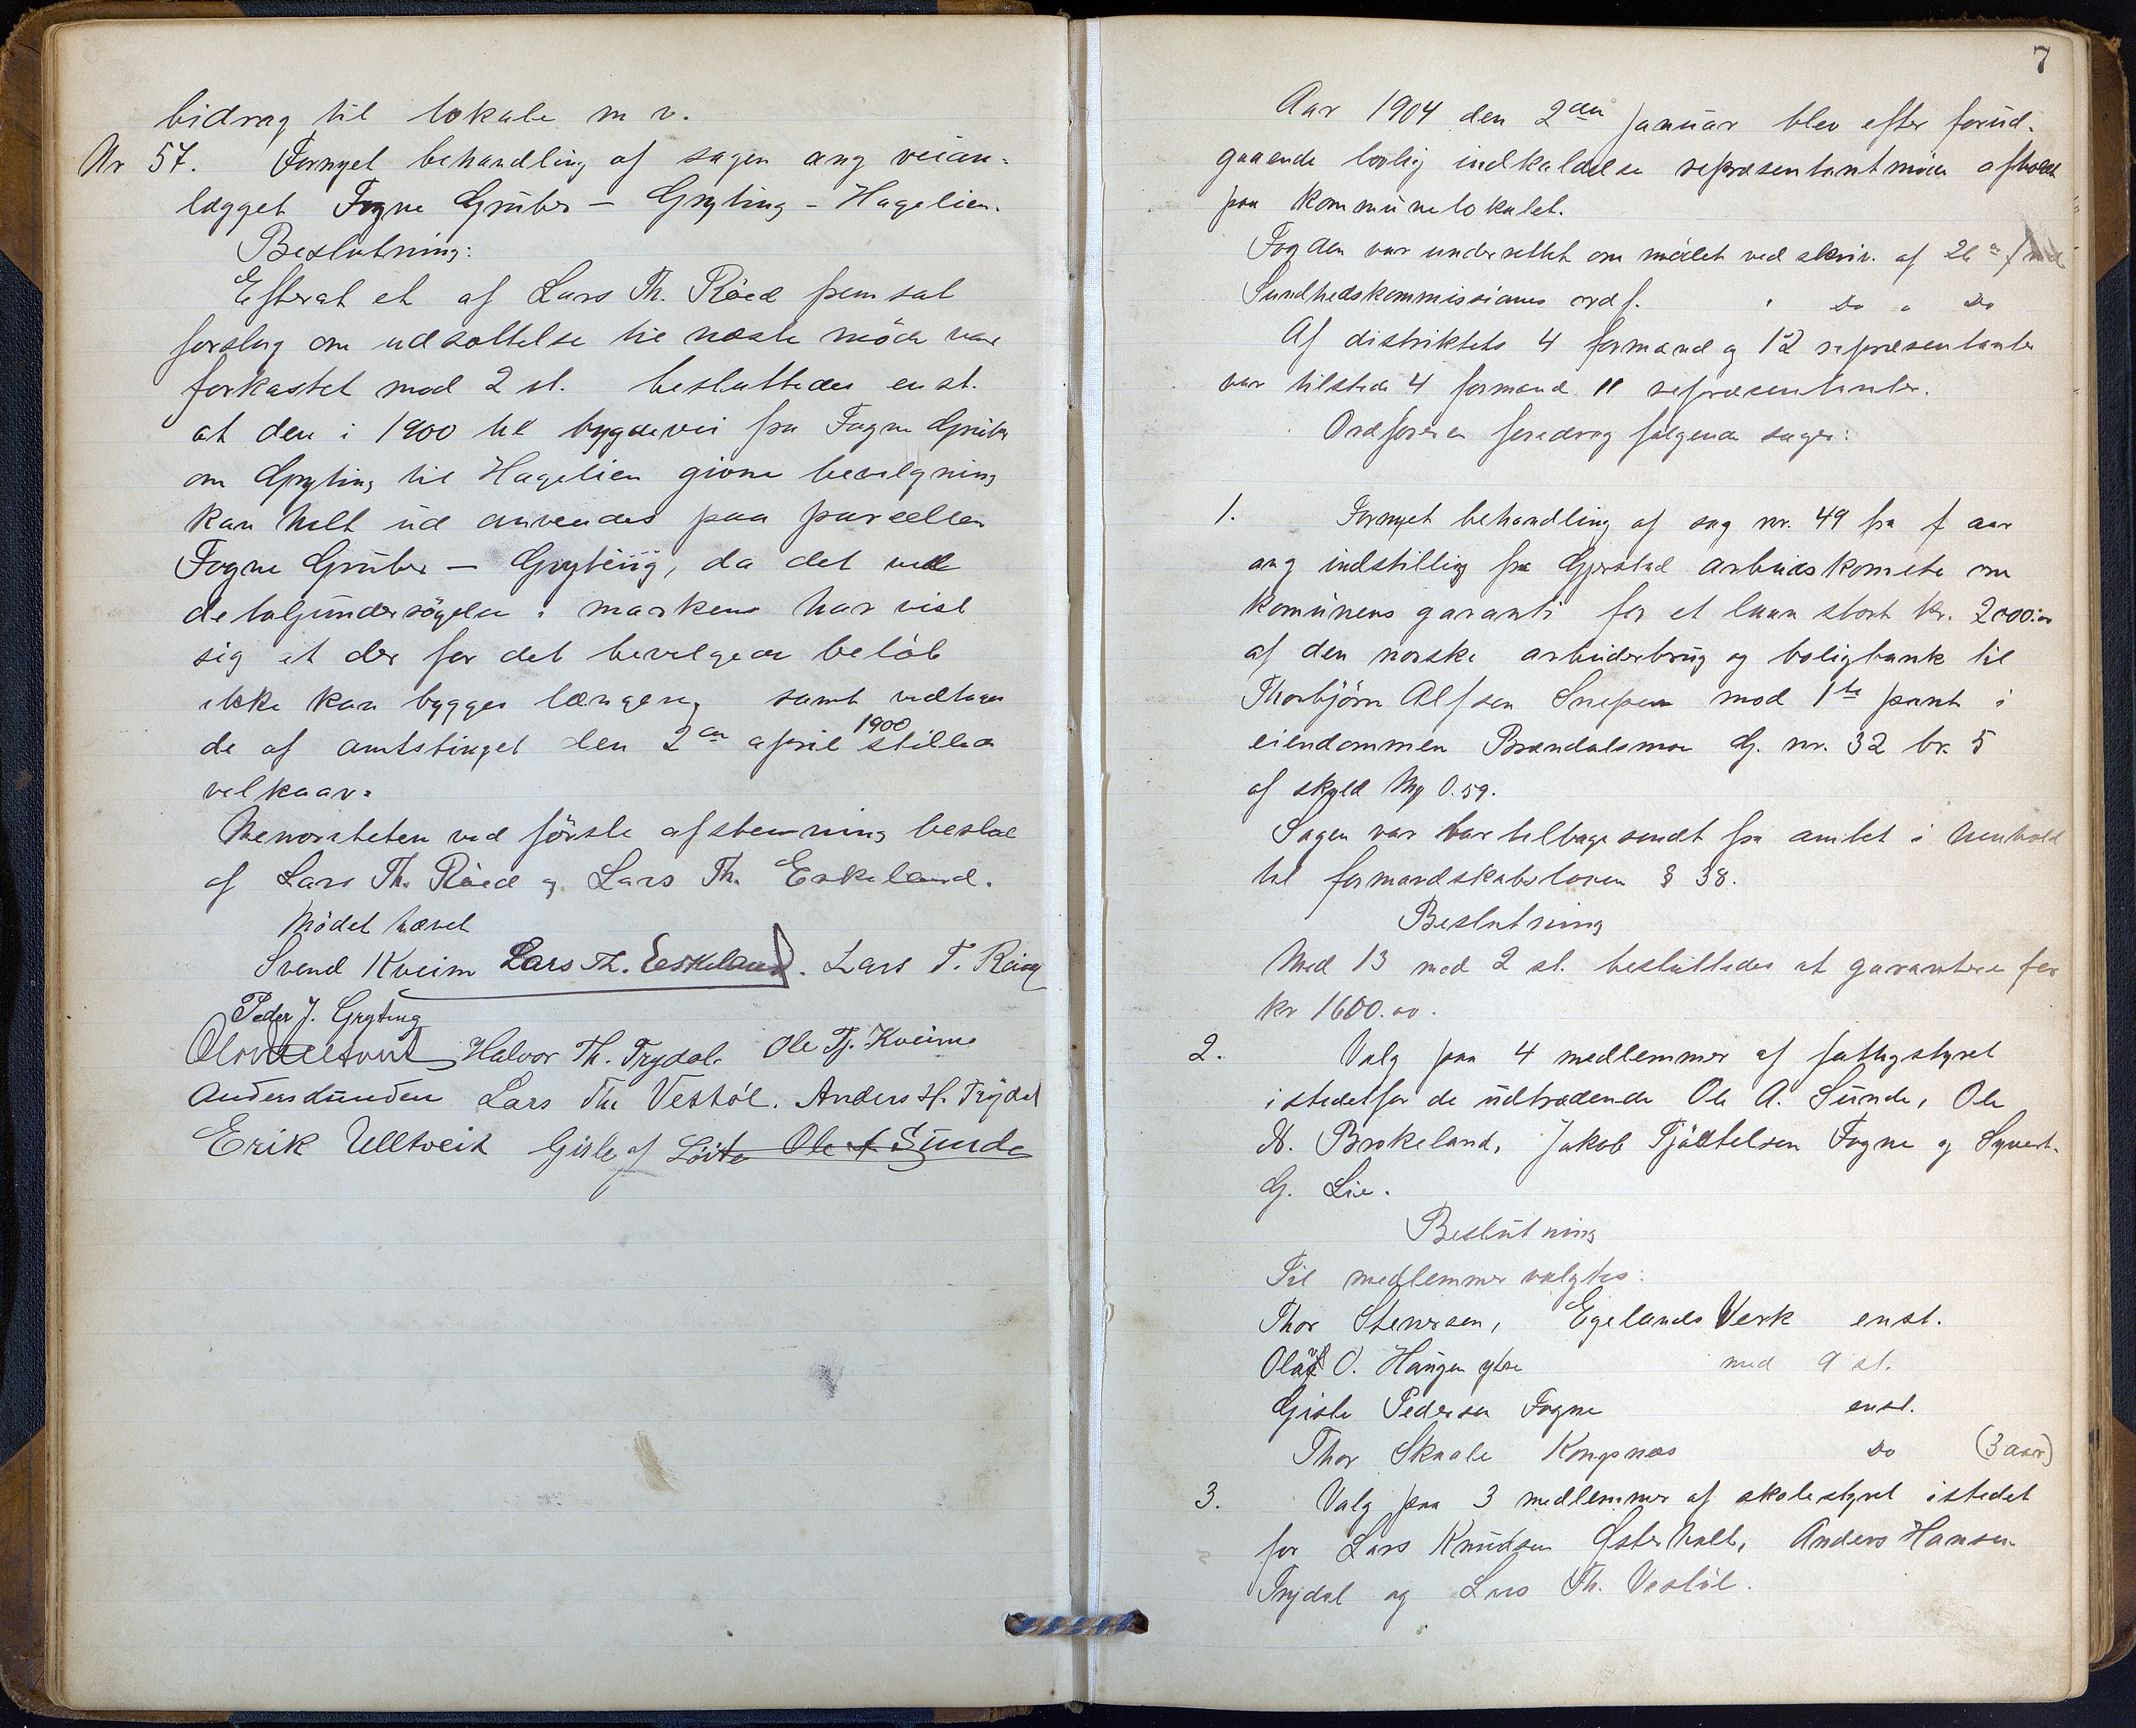 bidrag til lokale m v.
Nr 57. Fornyet behandling af sagen ang veian-
lægget Fogne Gruber – Gryting – Hagelien.
Beslutning:
Efterat et af Lars Th. Röed fremsat
forslag om udsættelse til næste möde var
forkastet mod 2 st. besluttedes enst.
at den i 1900 til bygdevei fra Fogne Gruber
om Gryting til Hagelien givne bevilgning
kan helt ud anvendes paa parcellen
Fogne Gruber – Gryting, da det ved
detaljundersögelse i marken har vist
sig at der for det bevilgede belöb
ikke kan bygges længere, samt vedtages
de af amtstinget den 2den april 1900 stillede
velkaar.
Menoriteten ved förste afstemning bestod
af Lars Th. Röed og Lars Th. Eskeland.
Mödet hævet
Svend Kveim Lars Th. Eeskeland. Lars T. Röing
Peder J. Gryting
Halvor Th. Trydal. Ole Tj. Kveime
Anders Sunden Lars Th Vestöl. Anders H. Trydal
Erik Ulltveit Gisle af Löite Ole A Sunde
7
Aar 1904 den 2den Januar blev efter forud-
gaaende lovlig indkaldelse repræsentantmöde afholdt
paa kommunelokalet.
Fogden var underrettet om mödet ved skriv. af 26de f. md
Sundhedskommissionens ordf. " Do " Do
Af distriktets 4 formænd og 12 repræsentanter
var tilstede 4 formænd 11 repræsentanter.
Ordföreren foredrog fölgende sager:
1. Fornyet behandling af sag nr. 49 fra f aar
ang indstilling fra Gjerstad arbeiderkomite om
komunens garanti for et laan stort kr. 2000:00
af den norske arbeiderbrug og boligbank til
Thorbjörn Alfsen Snepen mod 1te pant i
eiendommen Brændalsmoe G. nr. 32 br. 5
af skyld My 0.59.
Sagen var tilbagesendt fra amtet i henhold
til formandskabsloven § 38.
Beslutning
Med 13 mod 2 st. besluttedes at garantere for
kr 1600.00.
2. Valg paa 4 medlemmer af fattigstyret
istedetfor de udtrædende Ole A. Sunde, Ole
N. Brokeland, Jakob Tjöstelsen Fogne og Syvert
G. Lie.
Beslutning
Til medlemmer valgtes:
Thor Stenersen, Egelands Verk enst.
Olaf O. Haugen ytre med 9 st.
Gisle Pedersen Fogne enst.
Thor Skaale Kongsnæs Do (3 aar)
3. Valg paa 3 medlemmer af skolestyret istedet
for Lars Knudsen Østerholt, Anders Hansen
Trydal og Lars Th. Vestöl.